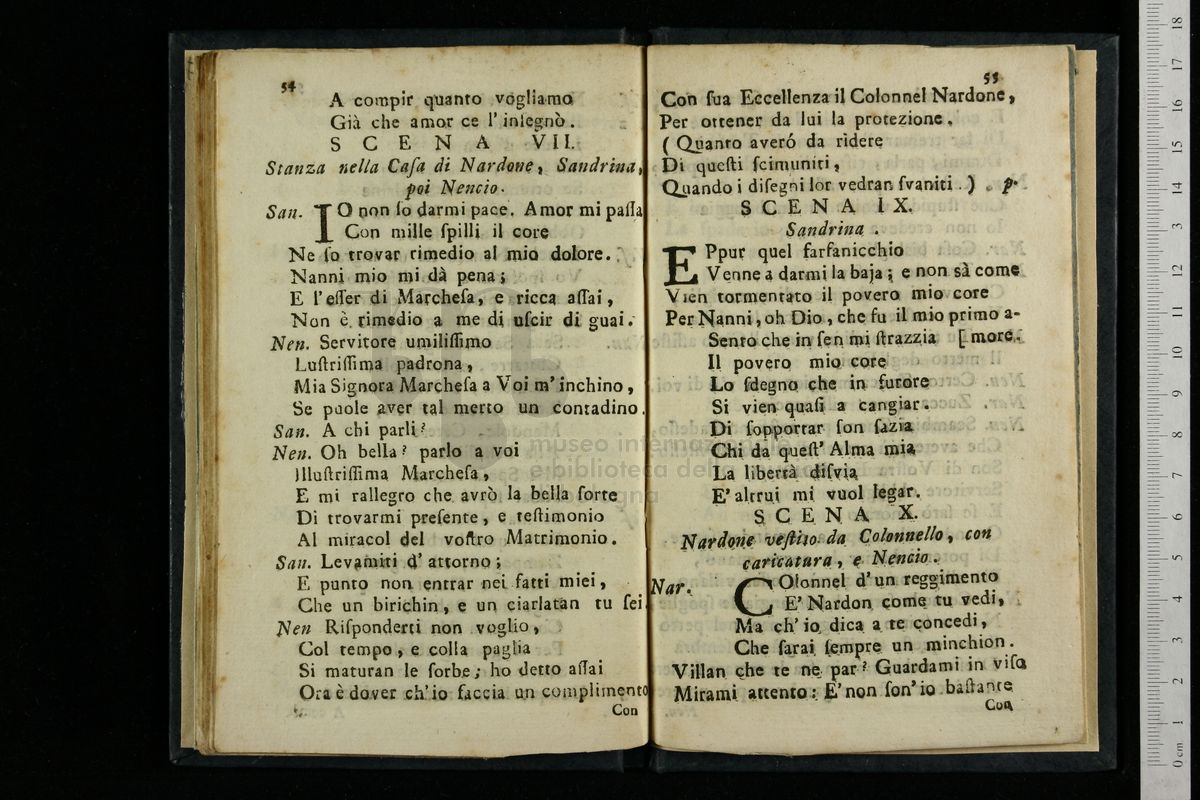 54
A compir quanto vogliamo
Già che amor ce l'inſegnò.
SCENA VII.
Stanza nella Caſa di Nardone, Sandrina,
poi Nencio.
San. IO non ſo darmi pace. Amor mi paſſa
Con mille ſpilli il core
Ne ſo trovar rimedio al mio dolore.
Nanni mio mi dà pena;
E l'eſſer di Marcheſa, e ricca aſſai,
Non è rimedio a me di uſcir di guai.
Nen. Servitore umiliſſimo
Luſtriſſima padrona,
Mia Signora Marcheſa a Voi m'inchino,
Se puole aver tal merto un contadino.
San. A chi parli?
Nen. Oh bella? parlo a voi
Illuſtriſſima Marcheſa,
E mi rallegro che avrò la bella ſorte
Di trovarmi preſente, e teſtimonio
Al miracol del voſtro Matrimonio.
San. Levamiti d'attorno;
E punto non entrar nei fatti miei,
Che un birichin, e un ciarlatan tu ſei.
Nen Riſponderti non voglio,
Col tempo, e colla paglia
Si maturan le ſorbe; ho detto aſſai
Ora è dover ch'io faccia un complimento
Con
55
Con ſua Eccellenza il Colonnel Nardone,
Per ottener da lui la protezione.
(Quanto averó da ridere
Di queſti ſcimuniti,
Quando i diſegni lor vedran ſvaniti.) p.
SCENA IX.
Sandrina.
EPpur quel farfanicchio
Venne a darmi la baja; e non sà come
Vien tormentato il povero mio core
Per Nanni, oh Dio, che fu il mio primo a-
Sento che in ſen mi ſtrazzia [more.
Il povero mio core
Lo ſdegno che in furore
Si vien quaſi a cangiar.
Di ſopportar ſon ſazia
Chi da queſt' Alma mia
La libertà diſvia
E' altrui mi vuol legar.
SCENA X.
Nardone veſtito da Colonnello, con
caricatura, e Nencio.
Nar. COlonnel d'un reggimento
E' Nardon come tu vedi,
Ma ch'io dica a te concedi,
Che ſarai ſempre un minchion.
Villan che te ne par? Guardami in viſo
Mirami attento: E' non ſon'io baſtante
Con
museo internazionale
e biblioteca della
bologna